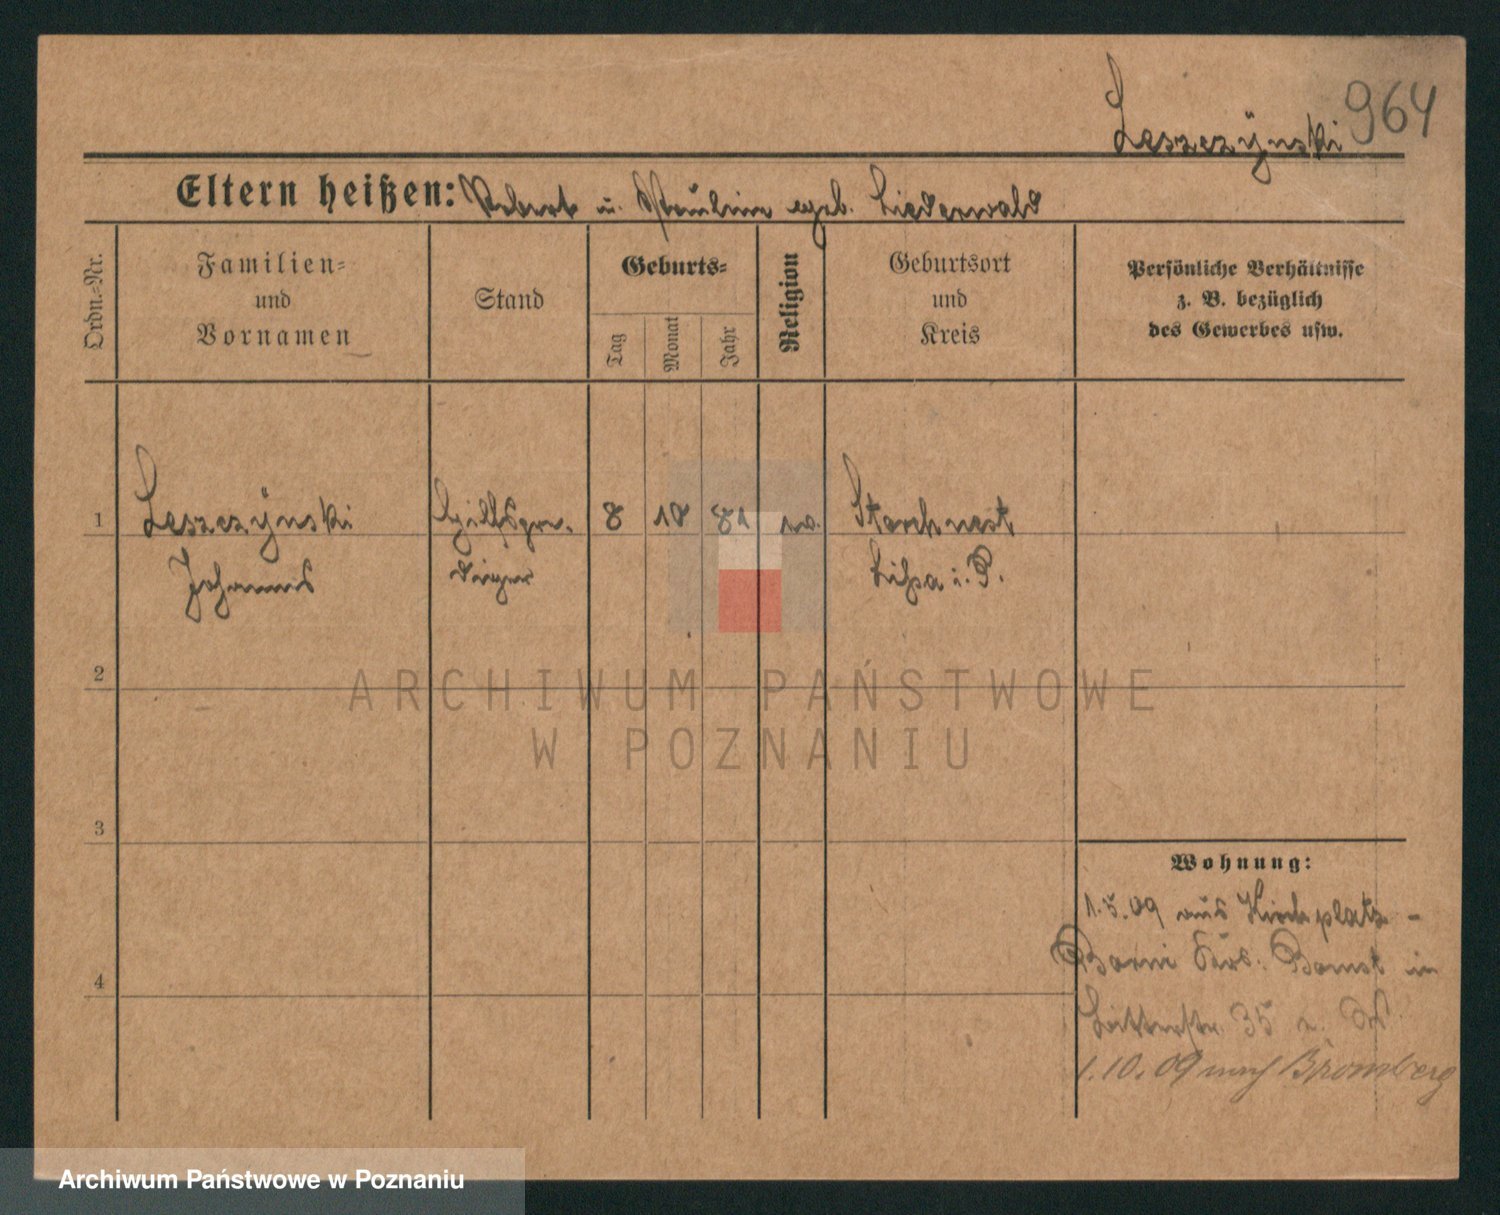 Leszczÿnski 964
Eltern heißen: Robert u. Pauline geb. Liederwald
Ordn.-Nr.
Familien-
und
Vornamen
Stand
Geburts-
Tag
Monat
Jahr
Religion
Geburtsort
und
Kreis
Persönliche Verhältnisse
z. B. bezüglich
des Gewerbes usw.
1
Leszczÿnski
Johannes
Hilfspre-
diger
8
10
81
Storchnest
Lissa i. P.
2
3
4
ARCHIWUM PAŃSTWOWE
W POZNANIU
Wohnung:
1.5.09 aus Kirchplatz -
Borni Bomst in
35
1.10.09 nach Bromberg
Archiwum Państwowe w Poznaniu